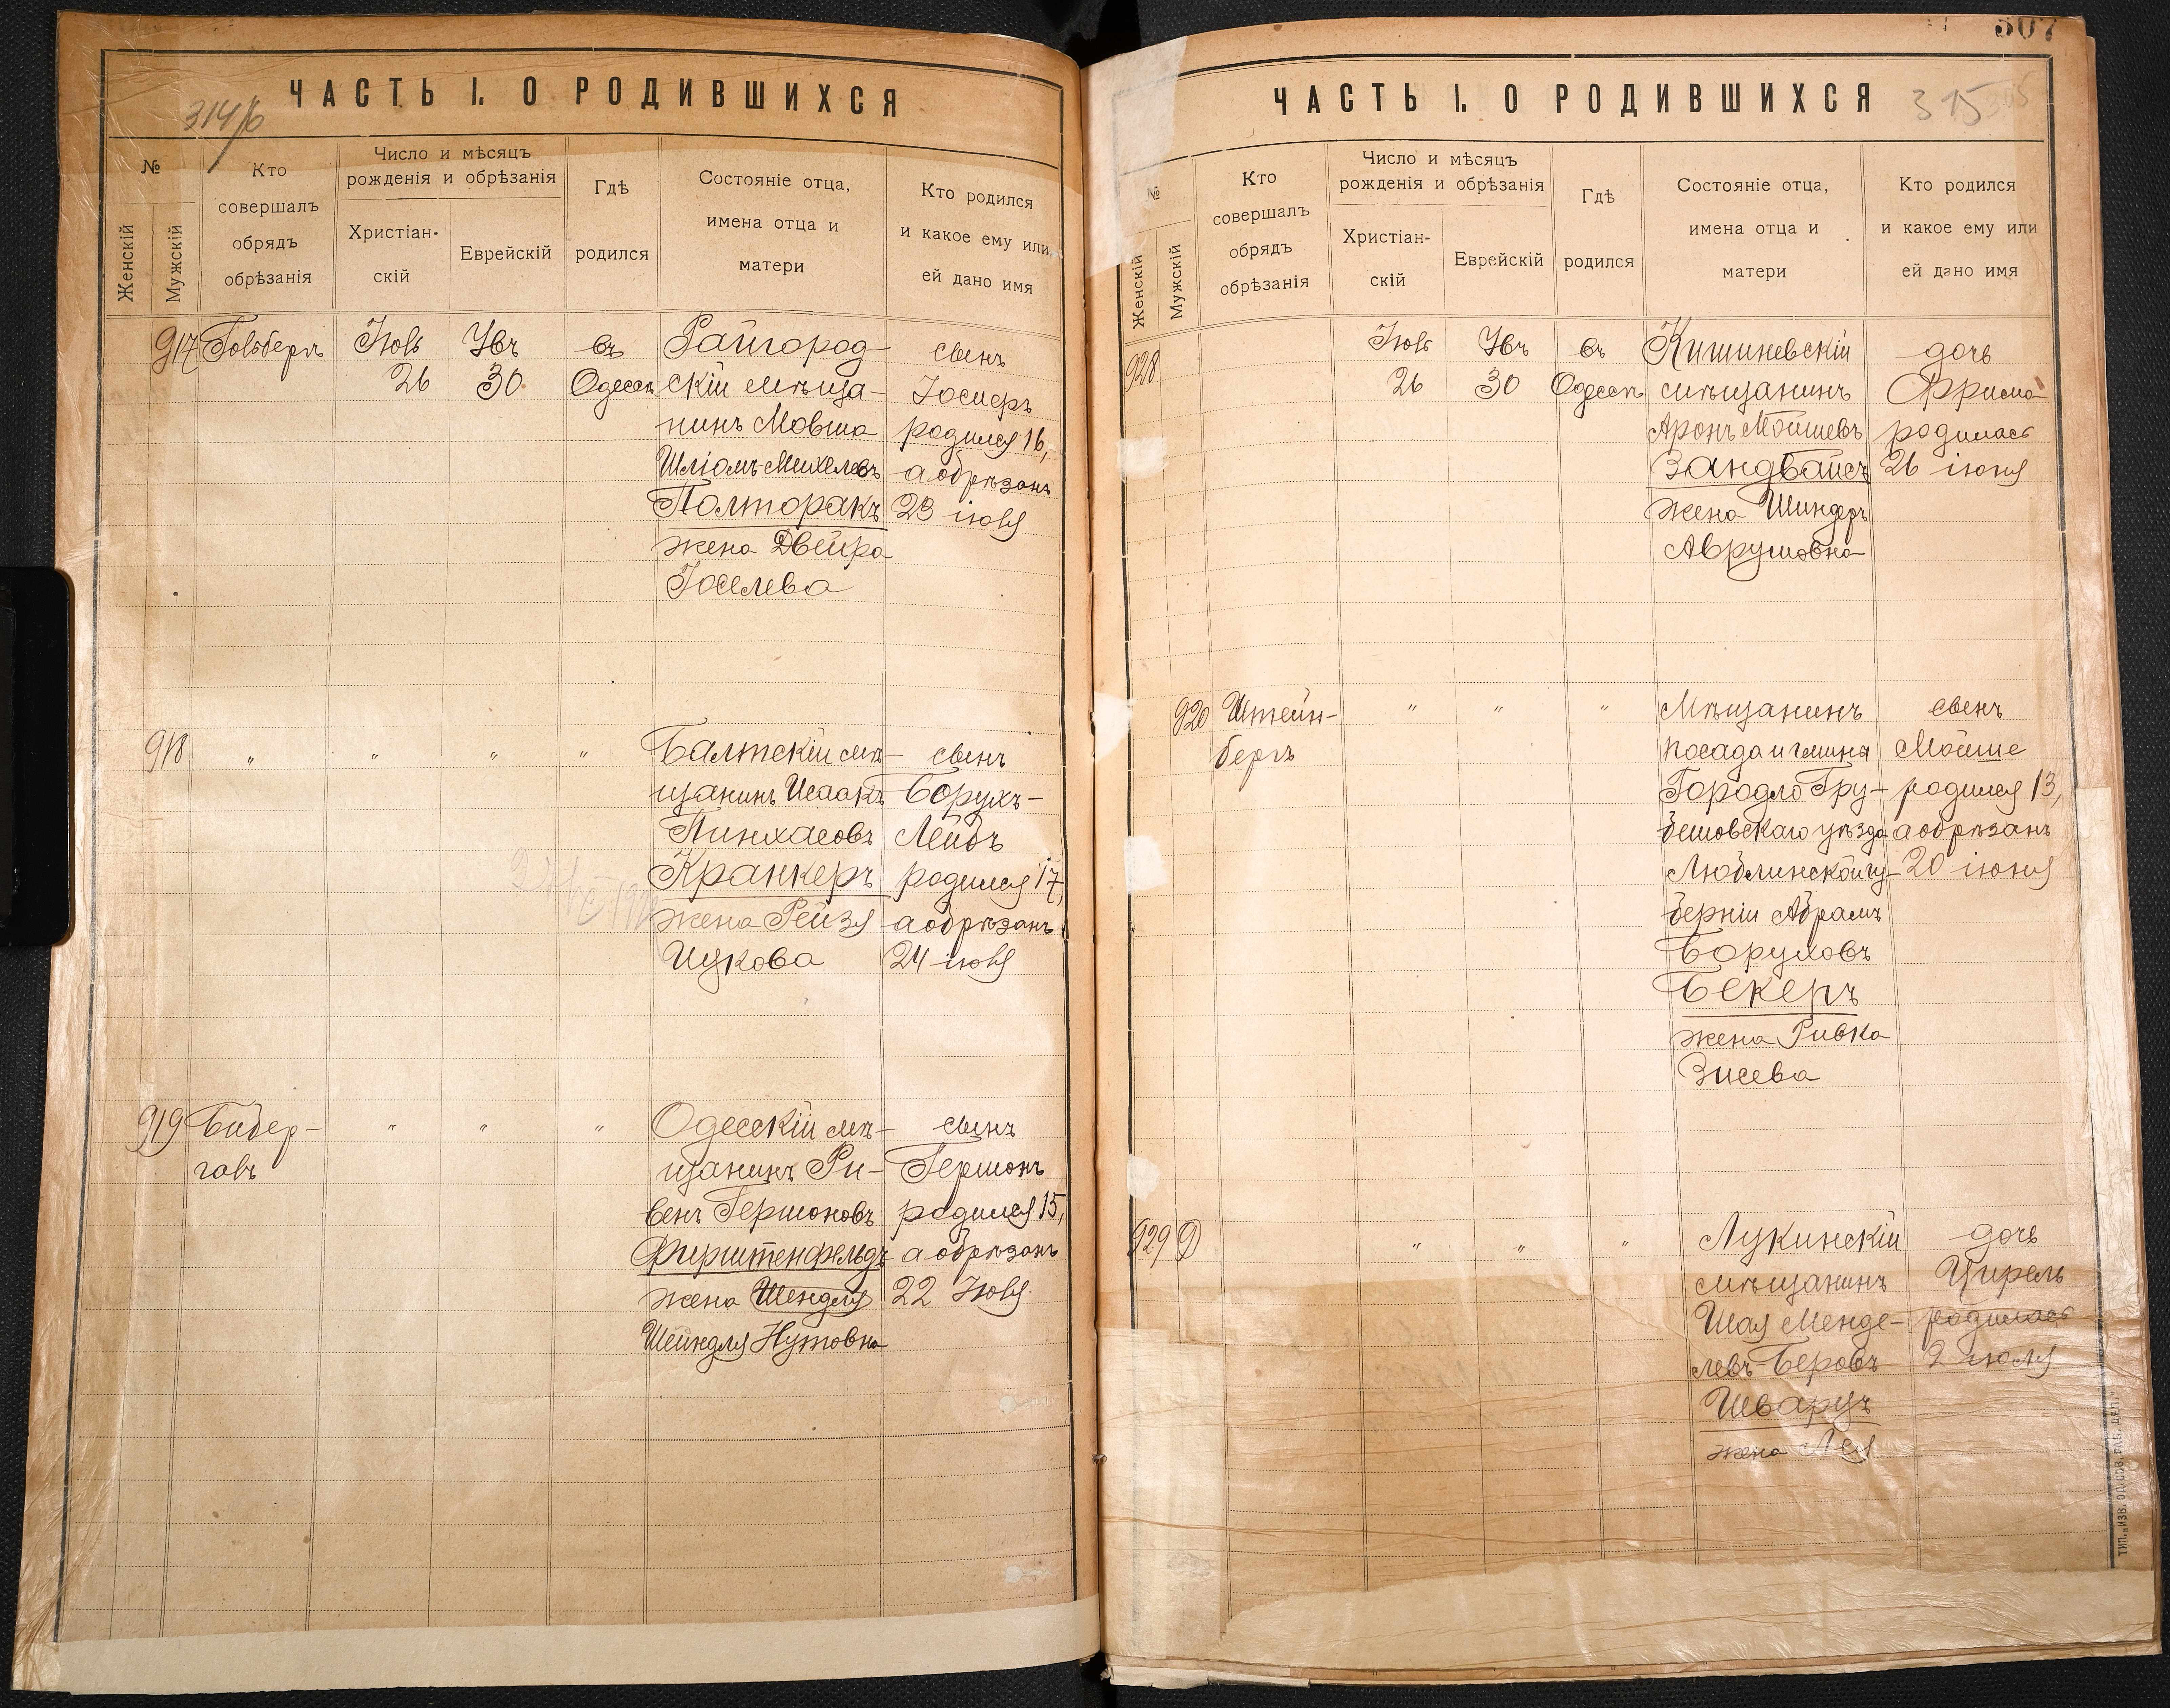 ЧАСТЬ I. О РОДИВШИХСЯ
№
Женскій
Мужскій
Кто
совершалъ
обрядъ
обрѣзанія
Число и мѣсяцъ
рожденія и обрѣзанія
Христіан-
скій
Еврейскій
Гдѣ
родился
Состояніе отца,
имена отца и
матери
Кто родился
и какое ему или
ей дано имя
917
26
30
въ
Одессѣ
Райгород-
скій мѣща-
нинъ Мовша
Шліомъ Михелевъ
Полторакъ
жена Двейра
Іоселева
сынъ
родился 16,
а обрѣзанъ
23
918
„ „ „ „
Балтскій мѣ-
щанинъ Исаакъ
Пинхасовъ
Кранкеръ
жена Рейзя
Цукова
сынъ
Борухъ-
Лейбъ
родился 17,
а обрѣзанъ
24
919
„ „ „
Одесскій мѣ-
щанинъ Ри-
венъ Гершоновъ
Фирштенфельдъ
жена Шендля
Шейндля Нутовна
сынъ
Гершонъ
родился 15,
а обрѣзанъ
22
314/б
507
ЧАСТЬ I. О РОДИВШИХСЯ
315
№
Женскій
Мужскій
Кто
совершалъ
обрядъ
обрѣзанія
Число и мѣсяцъ
рожденія и обрѣзанія
Христіан-
скій
Еврейскій
Гдѣ
родился
Состояніе отца,
имена отца и
матери
Кто родился
и какое ему или
ей дано имя
928
26
30
въ
Одессѣ
Кишиневскій
мѣщанинъ
Аронъ Мойшевъ
Зандвайсъ
жена Шиндеръ
Аврумовна
дочь
родилась
26 іюня
920
Штейн-
бергъ
„ „ „
Мѣщанинъ
посада и гмина
Городло Гру-
бешовскаго уѣзда
Люблинской гу-
берніи Абрамъ
Боруховъ
Бекеръ
жена Ривка
Зисева
сынъ
Мойше
родился 13,
а обрѣзанъ
20 іюня
929
„ „ „
Лукинскій
мѣщанинъ
Шая Менде-
левъ-Беровъ
Шварцъ
жена Лея
дочь
Цирель
родилась
2 іюля